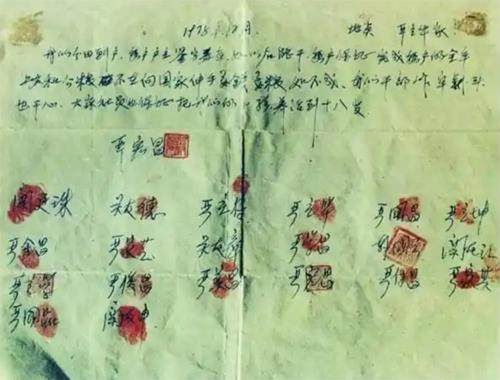 1978.12月. 地点 严立华家
我们分田到户,每户户主签字盖章,如以后能干,每户保证完成每户的全年
上交和公粮不在向国家伸手要钱要粮,如不成,我们干部作牢刹头
也干心,大家社员也保证把我们的小孩养活到十八岁
严宏昌
关廷珠 关友德 严立符 严立华 严国昌 严立坤
严金昌 严家芝 关友章 严学昌 韩国云 关友江
严立学 严俊昌 严美昌 严宏昌 严付昌 严家其
严国品 关友申